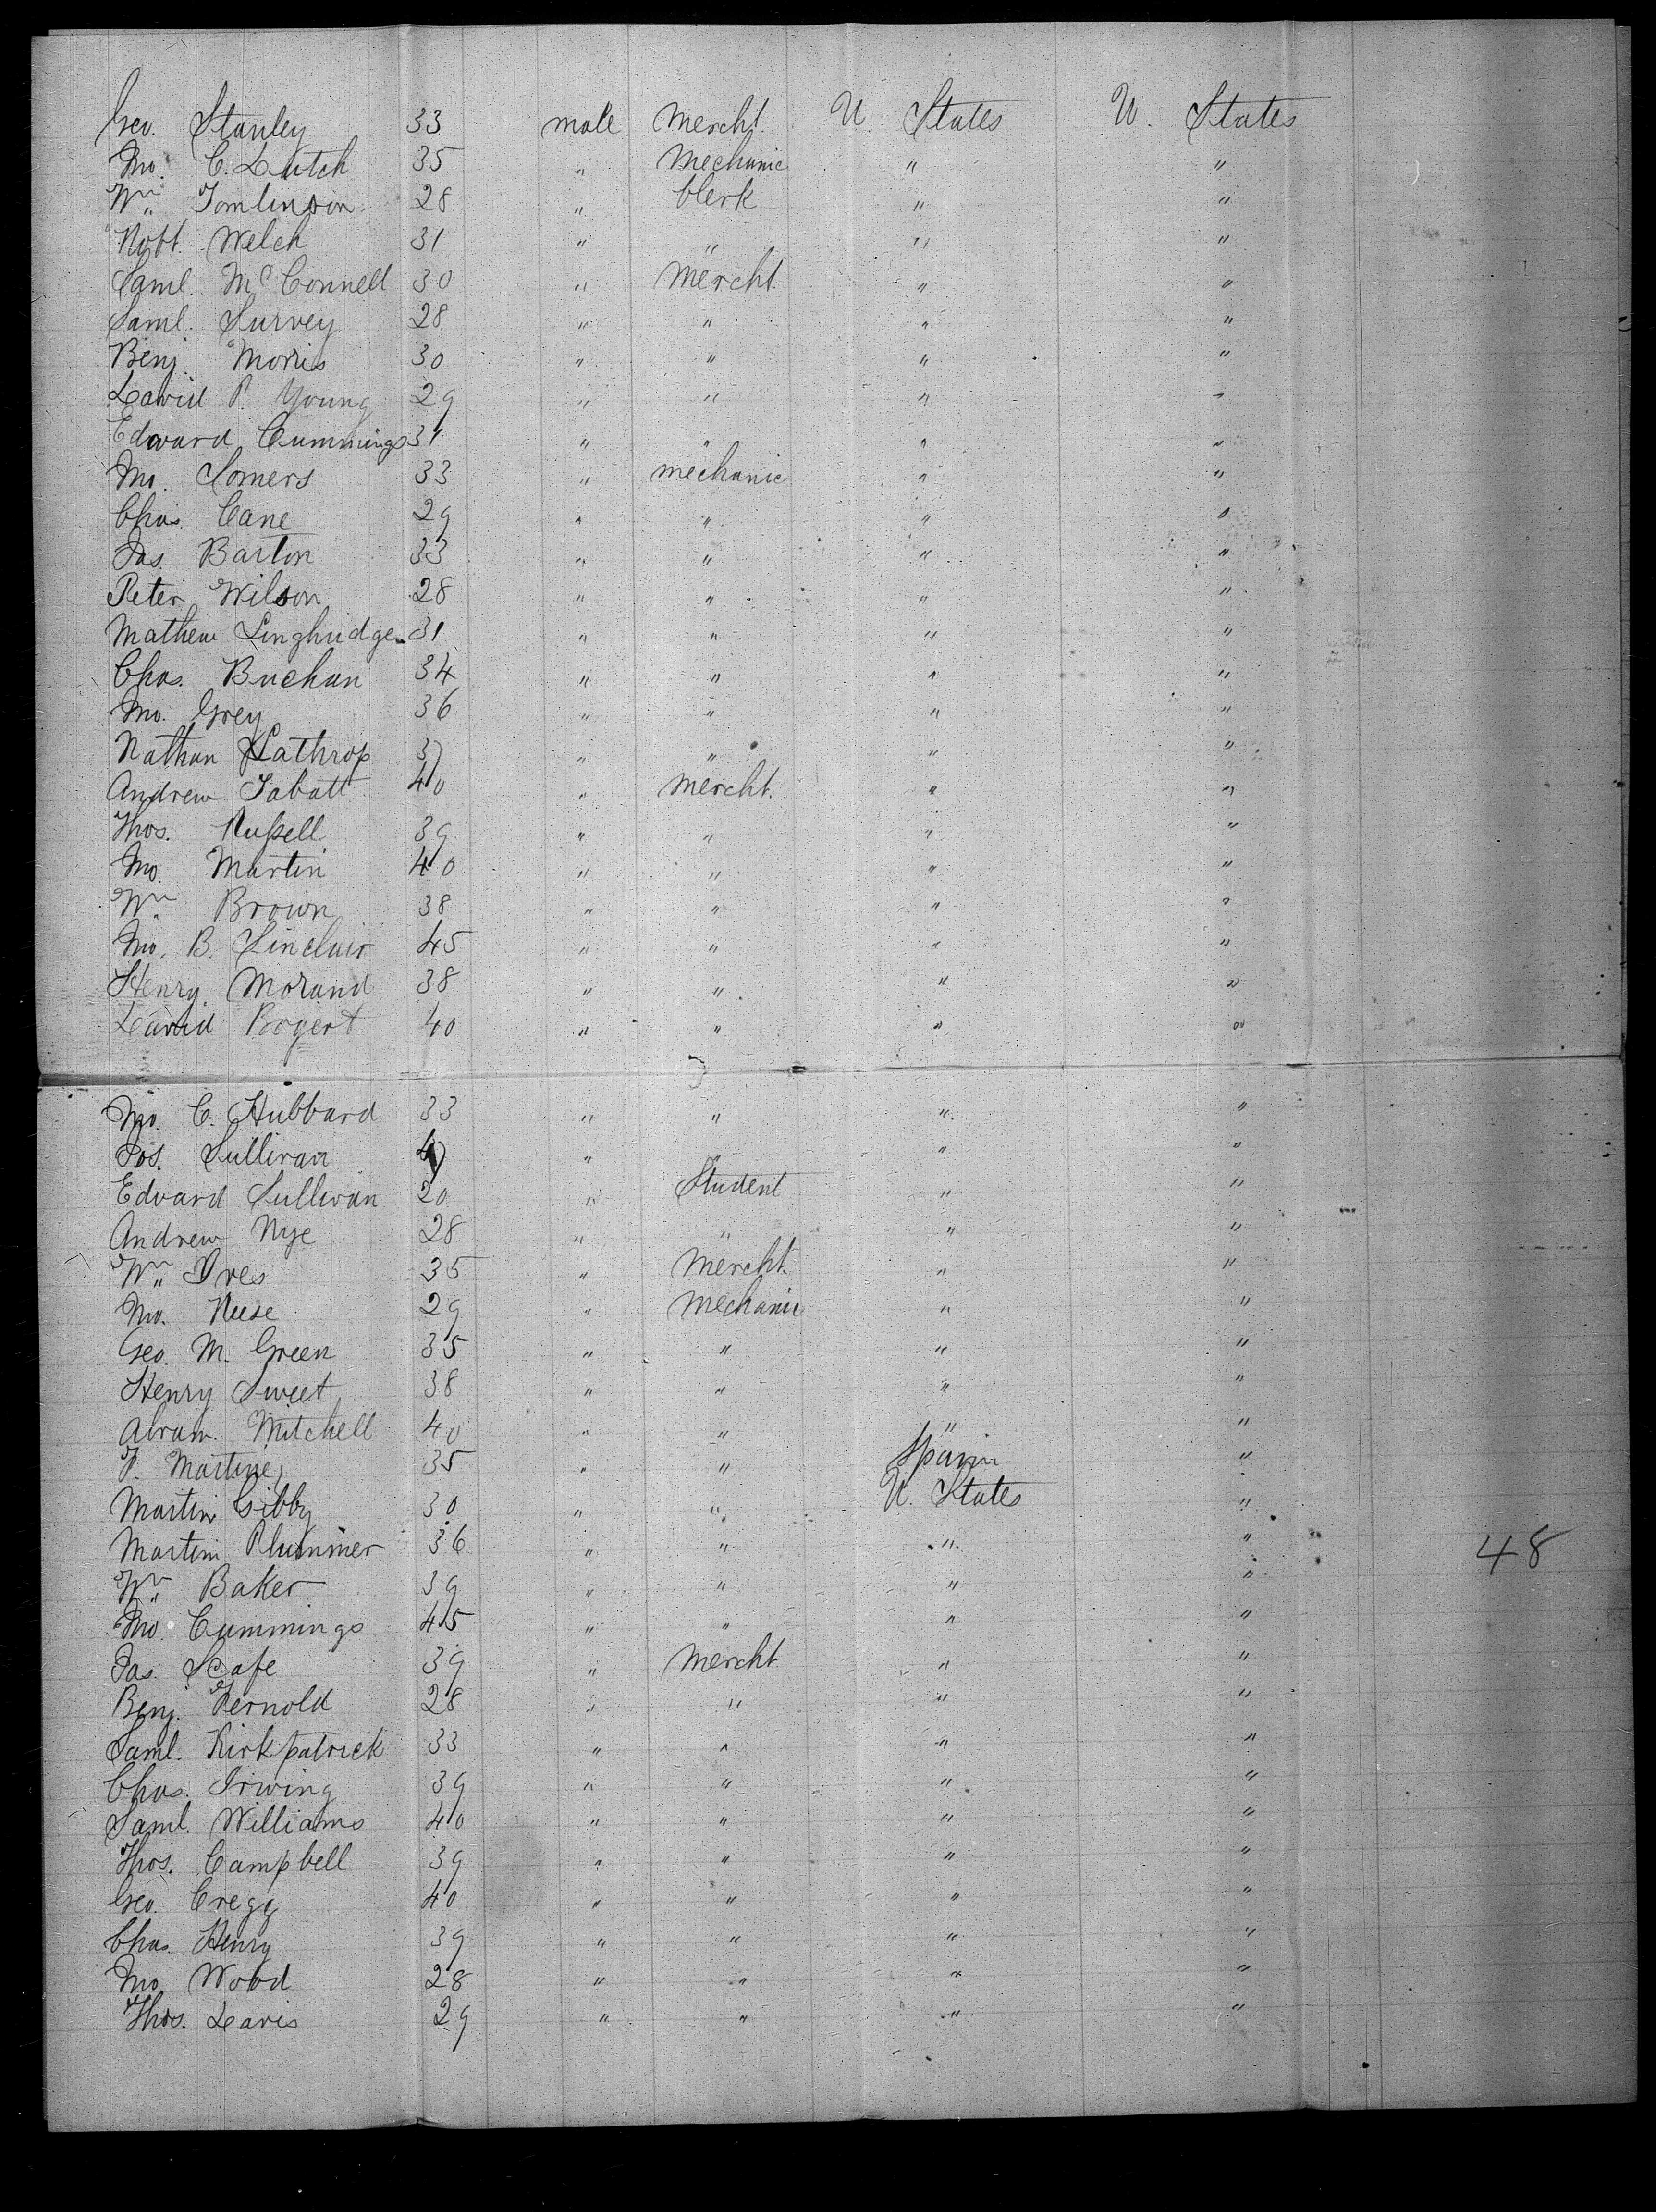 Geo. Stanley 33 male Mercht. U. States U. States
Jno. C. Dutch 35 " Mechanic " "
Wm. Tomlinson 28 " Clerk " "
Robt. Welch 31 " " " "
Saml. McConnell 30 " Mercht. " "
Saml. Survey 28 " " " "
Benj. Morris 30 " " " "
David P. Young 29 " " " "
Edward Cummings 31 " " " "
Jno. Somers 33 " mechanic " "
Chas. Cane 29 " " " "
Jas. Barton 33 " " " "
Peter Wilson 28 " " " "
Mathew 31 " " " "
Chas. Buchan 34 " " " "
Jno. Grey 36 " " " "
Nathan Lathrop 37 " " " "
Andrew Tabatt 40 " Mercht. " "
Thos. Russell 39 " " " "
Jno. Martin 40 " " " "
Wm. Brown 38 " " " "
Jno. B. Sinclair 45 " " " "
Henry Morand 38 " " " "
David Bogert 40 " " " "
Jno. C. Hubbard 33 " " " "
Jos. Sullivan " " " "
Edward Sullivan 20 " Student " "
Andrew Nye 28 " " " "
Wm. Ives 35 " Mercht. " "
Jno. 29 " Mechanic " "
Geo. M. Green 35 " " " "
Henry Sweet 38 " " " "
Abram. Mitchell 40 " " " "
P. 35 " " Spain "
Martin Gibby 30 " " U. States "
Martin Plummer 36 " " " " 48
Wm. Baker 39 " " " "
Jno. Cummings 45 " " " "
Jas. Scafe 39 " Mercht " "
Benj. Pernold 28 " " " "
Saml. Kirkpatrick 33 " " " "
Chas. Irwing 39 " " " "
Saml. Williams 40 " " " "
Thos. Campbell 39 " " " "
Geo. Cregg 40 " " " "
Chas. Henry 39 " " " "
Jno. Wood 28 " " " "
Thos. Davis 29 " " " "